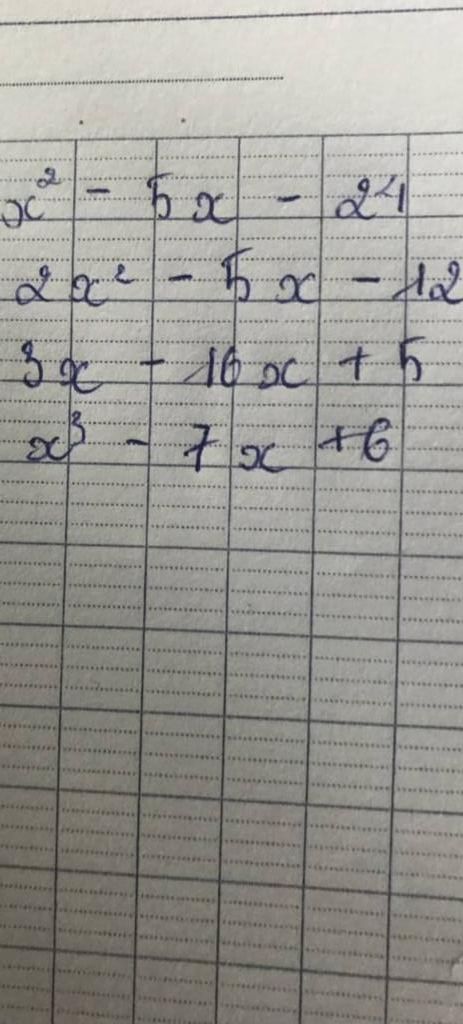 x² - 5x - 24
2x² - 5x - 12
3x - 16x + 5
x³ - 7x + 6